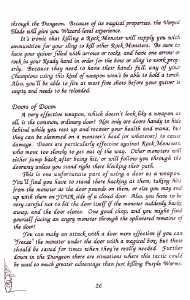 through the Dungeon. Because of its magical properties, the Vorpal
Blade will give you Wizard-level experience.
It's ironic that killing a Rock Monster will supply you with
ammunition for your sling to kill other Rock Monsters. Be sure to
have your quiver filled with arrows or rocks, and have one arrow or
rock in your Ready hand in order for the bow or sling to work prop-
erly. Because they need to have their hands full, any of your
Champions using this kind of weapon won't be able to hold a torch.
Also, you'll be able to fire at most five shots before your quiver is
empty and needs to be reloaded.
Doors of Doom
A very effective weapon, which doesn't look like a weapon at
all, is the common, ordinary door! Not only are doors handy to hide
behind while you rest up and recover your health and mana, but
they can be slammed on a monster's head (or whatever) to cause
damage. Doors are particularly effective against Rock Monsters,
who move too slowly to get out of the way. Other monsters will
either jump back after being hit, or will follow you through the
doorway unless you stand right there blocking their path.
This is one unfortunate part of using a door as a weapon.
You'll find you have to stand there hacking at them, taking hits
from the monster as the door pounds on them, or else you may end
up with them on YOUR side of a closed door. Also, you have to be
very careful not to let the door itself if the monster suddenly backs
away, and the door closes. One good chop, and you might find
yourself facing an angry monster through the splintered remains of
the door!
You can make an attack with a door more effective if you can
"freeze" the monster under the door with a magical box, but these
should be saved for times when they're really needed. Farther
down in the Dungeon there are situations where this tactic could
be used to much greater advantage than just killing Purple Worms.
26